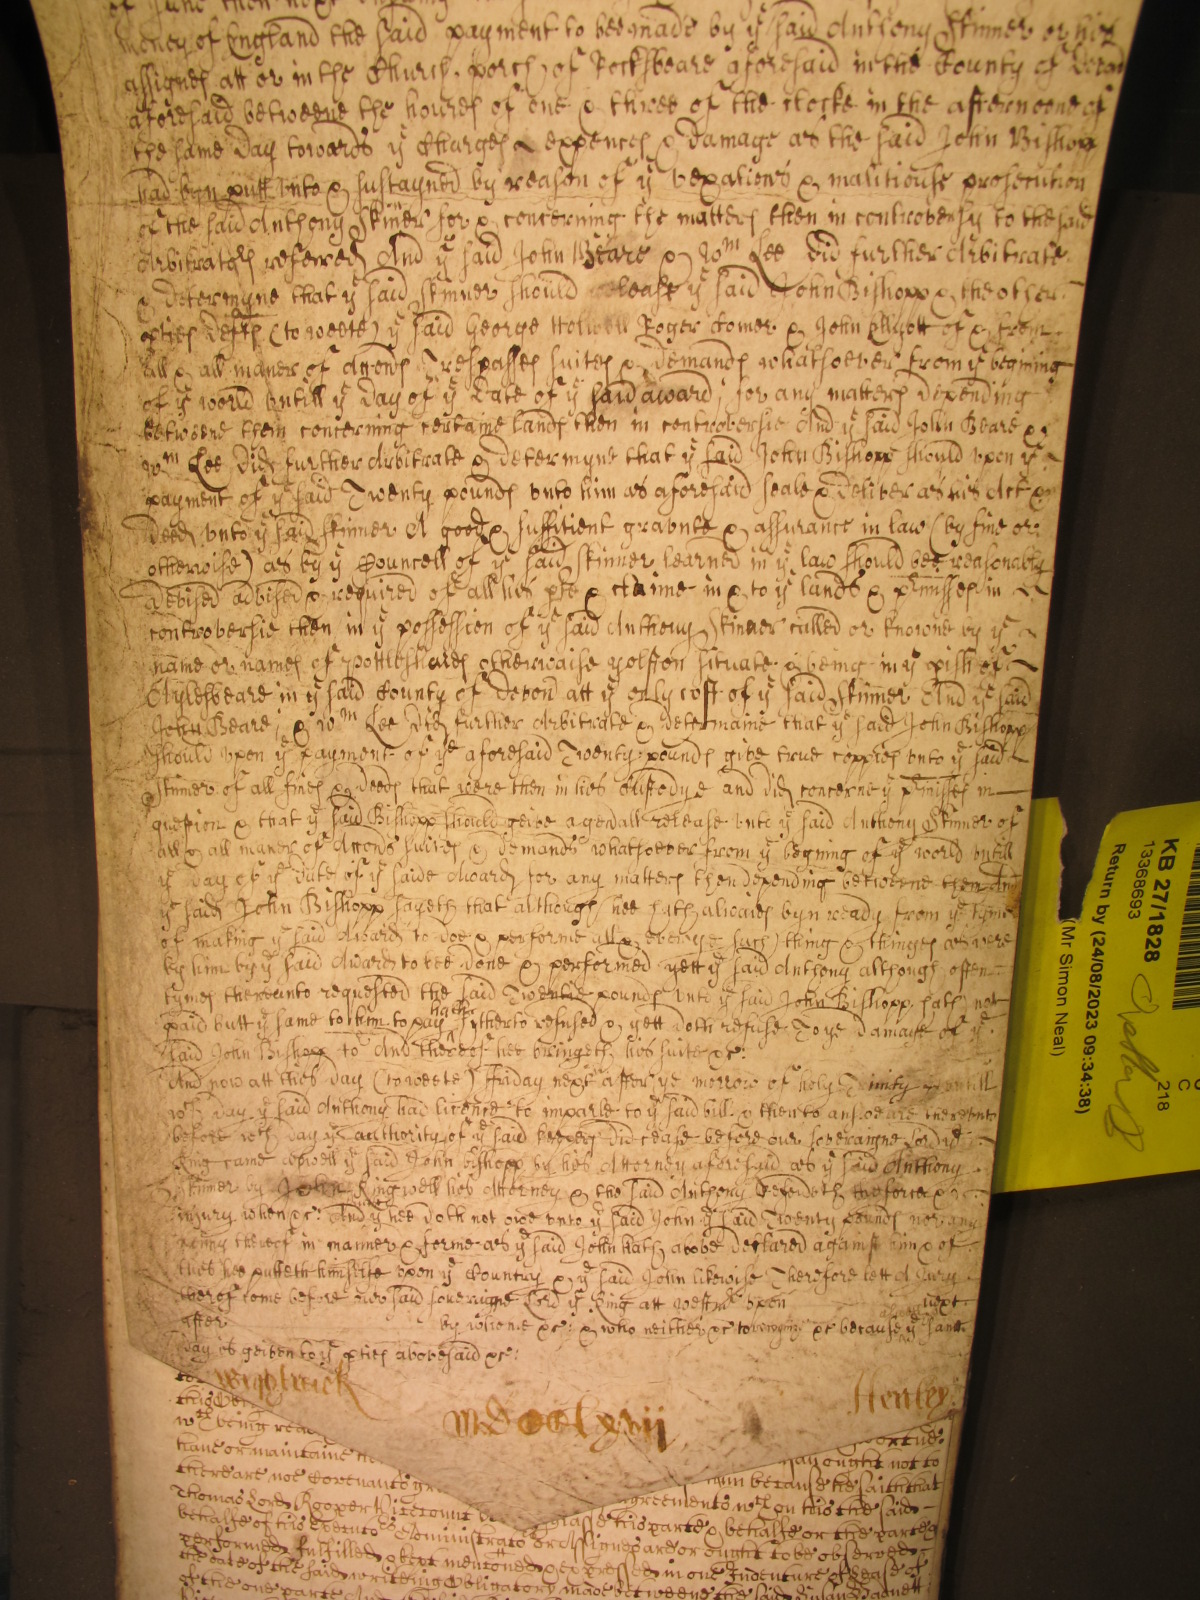 of June then next
money of England the said payment to bee made by yͤ said Anthony Skinner or his
assignes att or in the Church porch of Rockbeare aforesaid in the County of Devon
aforesaid betweene the houres of one & three of the clocke in the afternoone of
the same Day towards yͤ Charges expences & damage as the said John Bishopp
had byn putt unto & sustayned by reason of yͤ vexations & malitiouse prosecution
of the said Anthony Skiner for & concerning the matters then in controversy to the said
Arbitrators referred And yͤ said John Beare & Wͫ Lee did further Arbitrate
& determyne that yͤ said Skinner should release yͤ said John Bishopp & the other
(to weete) yͤ said George Hollwell Roger Comer & John Ellyott of & from
all & all maner of Accons Trespasses suites & demands whatsoever from yͤ begining
of yͤ world untill yͤ Day of yͤ Date of yͤ said award, for any matters depending
betweene them concerning certaine lands then in controversie And yͤ said John Beare &
Wͫ Lee Did further Arbitrate & determyne that yͤ said John Bishopp should upon yͤ
payment of yͤ said Twenty pounds unto him as aforesaid seale & deliver as his Act &
deed unto yͤ said Skinner A good & suffitient graunte & assurance in law (by fine or
otherwise) as by yͤ Councell of yͤ said Skinner learned in yͤ law should bee reasonably
devised advised & required of all his & claime in & to yͤ lands & pͬmisses in
controversie then in yͤ possession of yͤ said Anthony Skinner called or knowne by yͤ
name or names of otherwaise situate & being in yͤ pish of
Aylesbeare in yͤ said County of Devon att yͤ only cost of yͤ said Skinner And yͤ said
John Beare, & Wͫ Lee Did further Arbitrate & determaine that yͤ said John Bishopp
should upon yͤ payment of yͤ aforesaid Twenty pounds give true coppies unto yͤ said
Skinner of all fines & deeds that were then in his Custodye and did concerne yͤ pͬmisses in
question & that yͤ said Bishopp should geive a genall release unto yͤ said Anthony Skinner of
all & all maner of Accons suites & demands whatsoever from yͤ begining of yͤ world untill
yͤ day of yͤ date of yͤ saide Award for any matters then depending betweene them And
yͤ said John Bishopp sayeth that although hee hath alwaies byn ready from yͤ tyme
of making yͤ said Award to doe & performe all & every such thing & thinges as were
by him by yͤ said Award to bee done & performed yett yͤ said Anthony although often
tymes thereunto requested the said Twentie pounds unto yͤ said John Bishopp hath not
paid butt yͤ same to him to pay hath hitherto refused & yett doth refuse To ye damage of yͤ
said John Bishopp And thereof hee bringeth his suite &c:
And now att this day (to weete) Friday next after ye morrow of holy Trinity untill
wͨͪ day yͤ said Anthony had licence to imparle to yͤ said bill & then to answeare thereunto
before wͨͪ day yͤ authority of yͤ said did cease before our soveraigne Lord yͤ
King came aswell yͤ said John Bishopp by his Attorney aforesaid as yͤ said Anthony
Skinner by John Ringwell his Attorney & the said Anthony defendeth the force &
injury when &c: And hee doth not owe unto yͤ said John yͤ said Twenty Pounds nor any
penny thereof in manner & forme as yͤ said John hath above declared against him & of
this hee putteth himselfe upon yͤ Country & yͤ said John likewise Therefore lett A Jury
therof come before our said soveraigne Lord yͤ King att Westmͬ upon next
after by whome &c: & who neither &c to &c because yͤ same
day is geiven to yͤ pties abovesaid &c:
Wightwick
Henley.
MDCCLxvii
wͨͪ being read
have or maintaine ought not to
there are noe Covenants him because he saith that
agreements wͨͪ on this the said
Thomas Lord his parte & behalfe or the parte &
behalfe of his Executoͬs Administratoͬ or Assignes are or ought to be observed
performed fulfilled & kept mentioned & expressed in one Indenture of Lease of
the date of the said writeing Obligatory made betweene the said
of the one parte
KB 27/1828
13368693
Return by (24/08/2023 09:34:38)
(Mr Simon Neal)
C
218